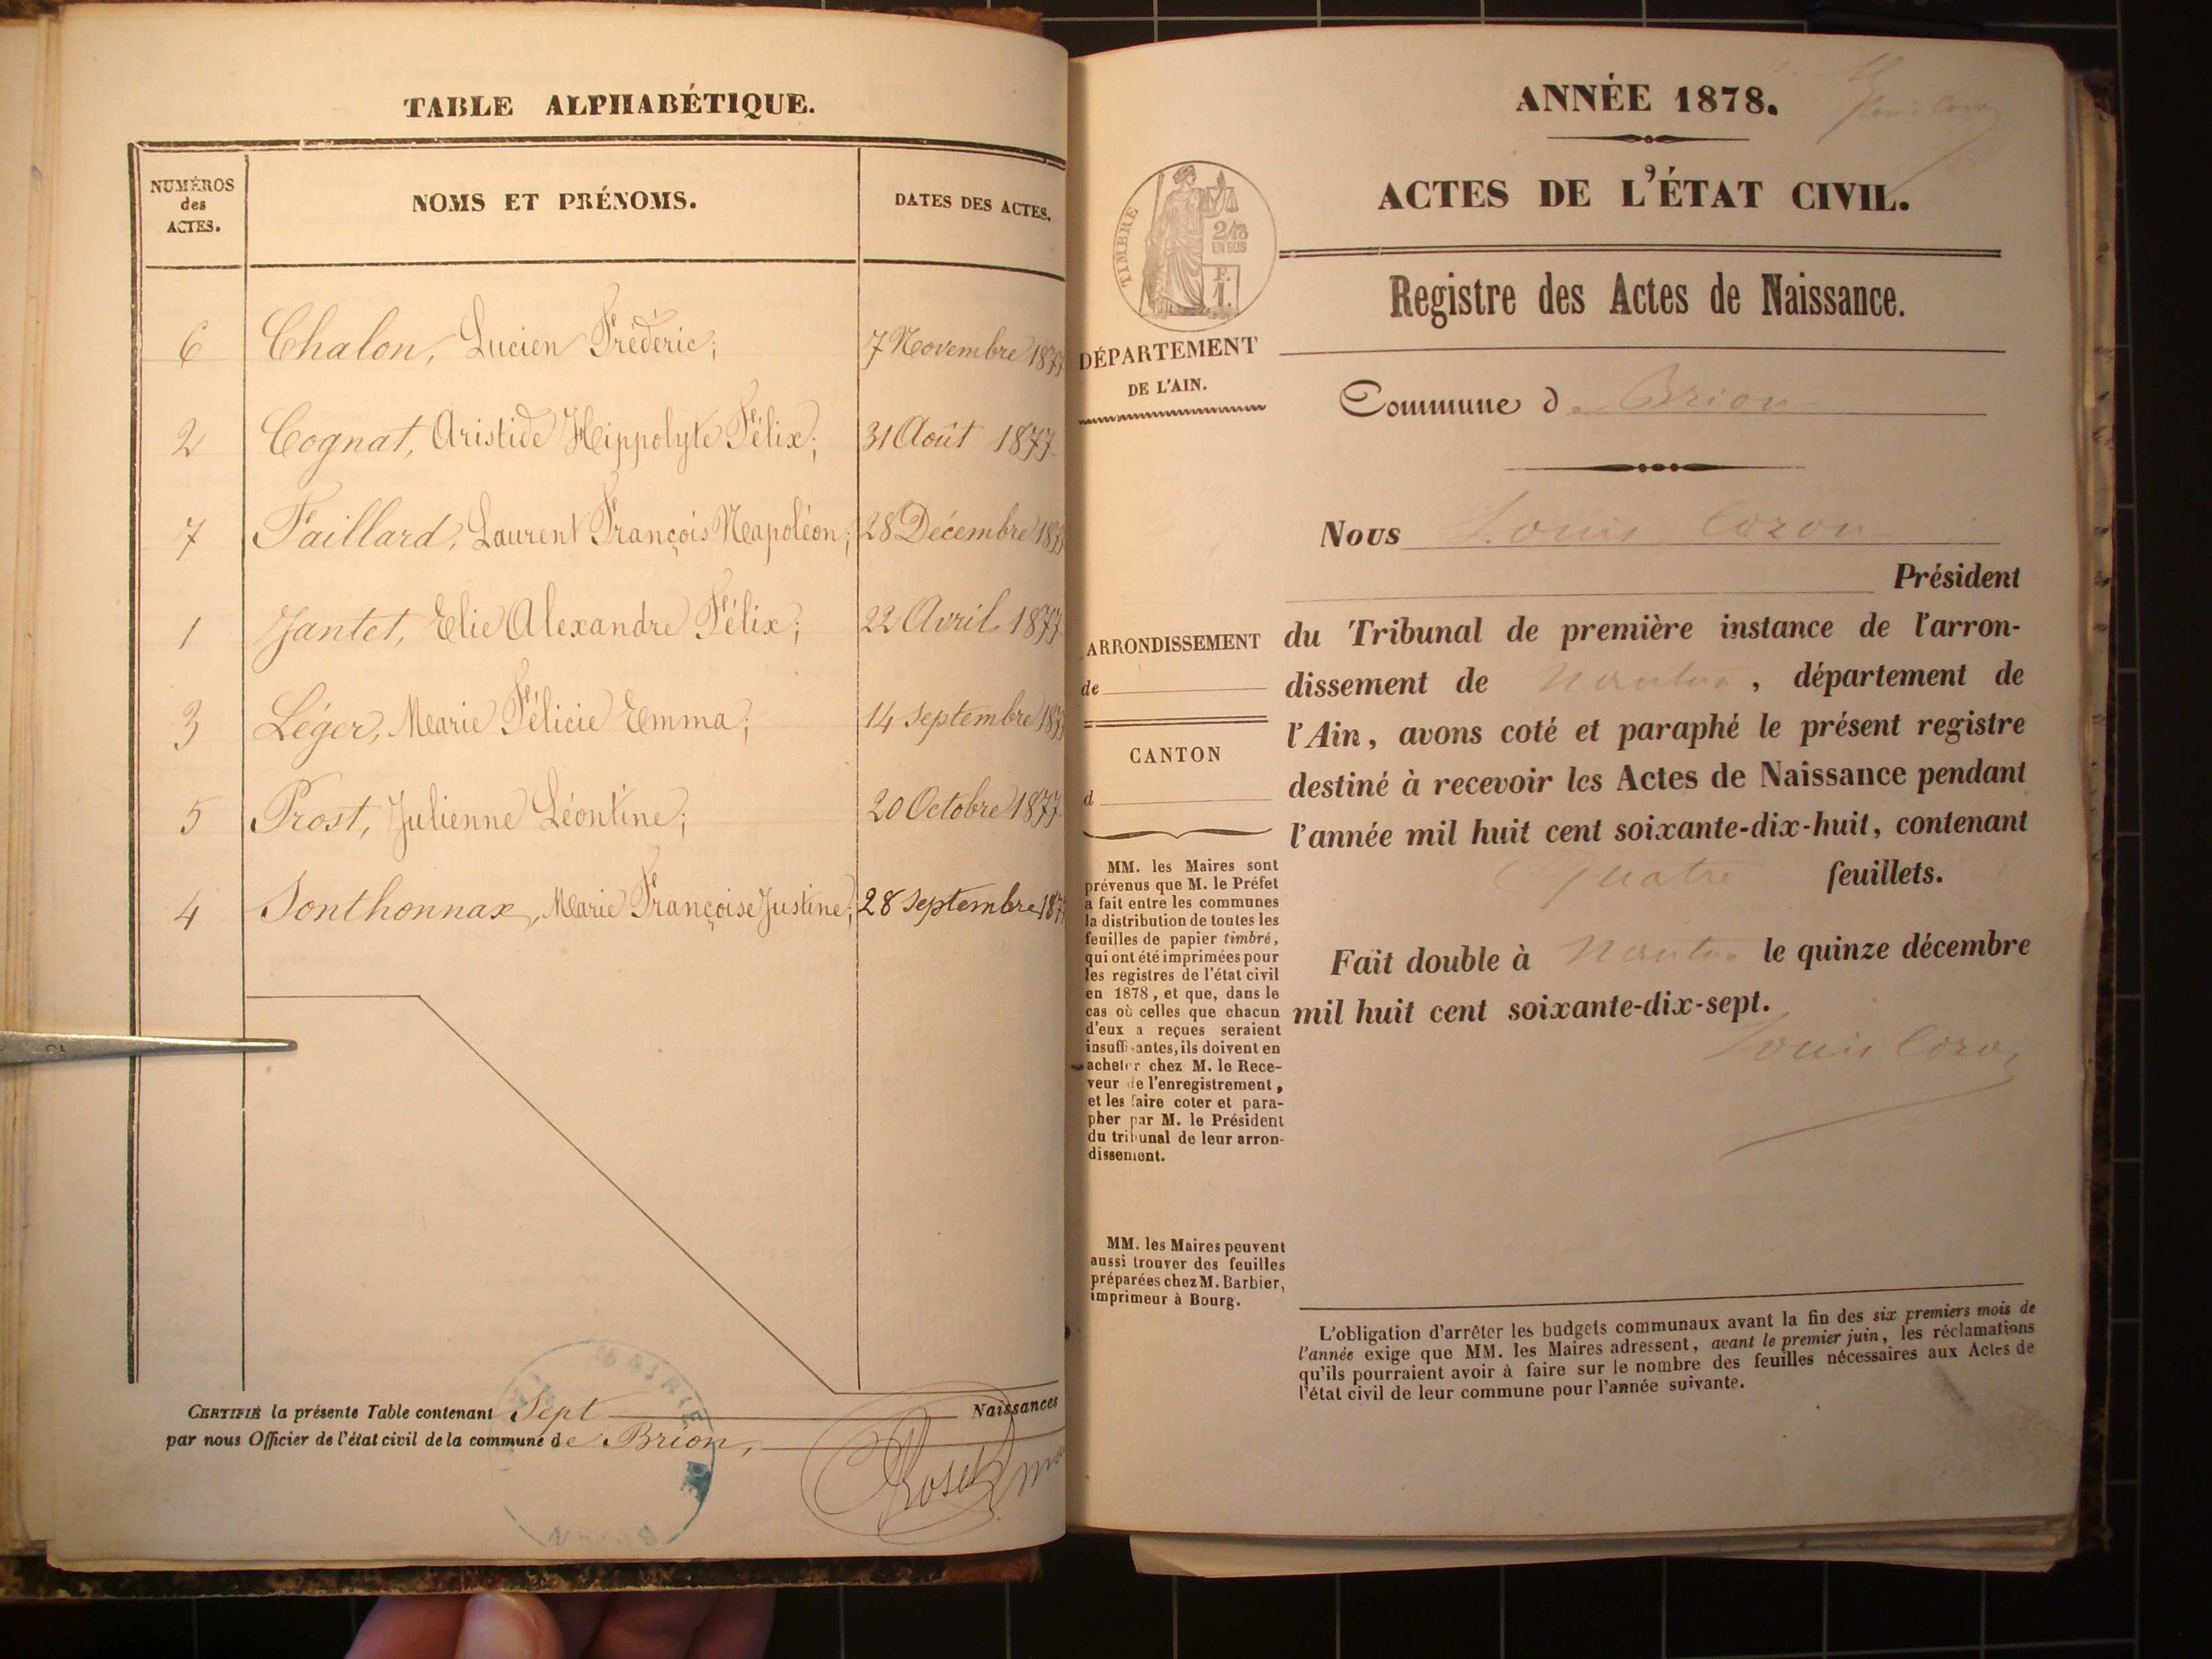 TABLE ALPHABÉTIQUE.
NUMÉROS
des
ACTES.
NOMS ET PRÉNOMS.
DATES DES ACTES.
6 Chalon, Lucien Fréderic; 7 Novembre 1877
2 Cognat, Aristide Hippolyte Félix; 31 Août 1877.
7 Faillard, Laurent François Napoléon; 28 Décembre 1877
1 Jantet, Elie Alexandre Félix; 22 Avril 1877.
3 Léger, Marie Félicie Emma; 14 Septembre 1877
5 Prost, Julienne Léontine; 20 Octobre 1877.
4 Sonthonnax, Marie Françoise Justine; 28 Septembre 187
CERTIFIÉ la présente Table contenant Sept Naissances
par nous Officier de l'état civil de la commune de Brion,
MAIRIE
ANNÉE 1878.
ACTES DE L'ÉTAT CIVIL.
TIMBRE
2/10
EN SUS
F.
1.
Registre des Actes de Naissance.
DÉPARTEMENT
DE L'AIN.
Commune de Brion
Nous Louis Cozon
Président
ARRONDISSEMENT
de
CANTON
d
du Tribunal de première instance de l'arron-
dissement de Nantua, département de
l'Ain, avons coté et paraphé le présent registre
destiné à recevoir les Actes de Naissance pendant
l'année mil huit cent soixante-dix-huit, contenant
Quatre feuillets.
Fait double à Nantua le quinze décembre
mil huit cent soixante-dix-sept.
Louis Cozon
MM. les Maires sont
prévenus que M. le Préfet
a fait entre les communes
la distribution de toutes les
feuilles de papier timbré,
qui ont été imprimées pour
les registres de l'état civil
en 1878, et que, dans le
cas où celles que chacun
d'eux a reçues seraient
insuffisantes, ils doivent en
acheter chez M. le Rece-
veur de l'enregistrement,
et les faire coter et para-
pher par M. le Président
du tribunal de leur arron-
dissement.
MM. les Maires peuvent
aussi trouver des feuilles
préparées chez M. Barbier,
imprimeur à Bourg.
L'obligation d'arrêter les budgets communaux avant la fin des six premiers mois de
l'année exige que MM. les Maires adressent, avant le premier juin, les réclamations
qu'ils pourraient avoir à faire sur le nombre des feuilles nécessaires aux Actes de
l'état civil de leur commune pour l'année suivante.